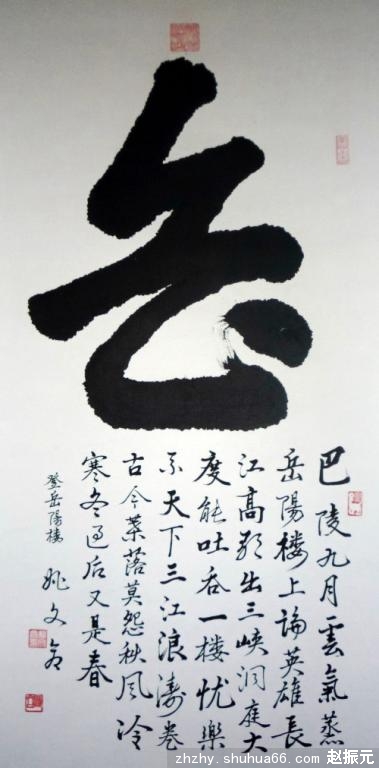 岳
巴陵九月雲氣蒸
岳陽楼上論英雄長
江高歌出三峡洞庭大
度能吐吞一楼忧樂
系天下三江浪濤卷
古今葉落莫怨秋风冷
寒冬过后又是春
登岳陽楼
姚文
zhzhy.shuhua66.com 赵振元